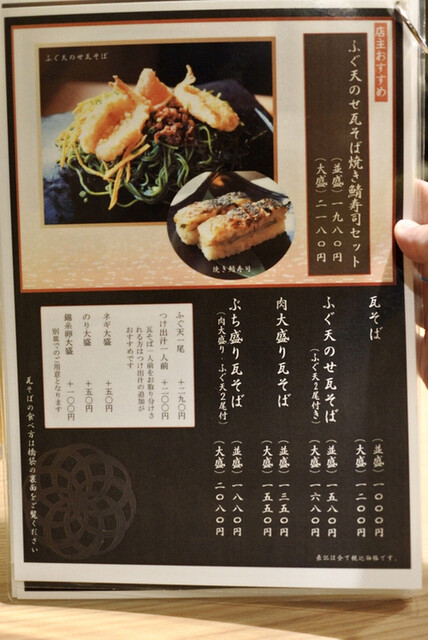 店主おすすめ
ふぐ天のせ瓦そば焼き鯖寿司セット
（並盛）一九八〇円
（大盛）二一八〇円
ふぐ天のせ瓦そば
焼き鯖寿司
瓦そば
（並盛）一〇〇〇円
（大盛）一二〇〇円
ふぐ天のせ瓦そば
（ふぐ天2尾付き）
（並盛）一五八〇円
（大盛）一六八〇円
肉大盛り瓦そば
（並盛）一三五〇円
（大盛）一五五〇円
ぶち盛り瓦そば
（肉大盛り・ふぐ天2尾付）
（並盛）一八八〇円
（大盛）二〇八〇円
ふぐ天一尾 +二九〇円
つけ出汁一人前 +二〇〇円
瓦そば一人前をお取り分けさ
れる方はつけ出汁の追加が
おすすめです
ネギ大盛 +五〇円
のり大盛 +五〇円
錦糸卵大盛 +一〇〇円
別皿でのご用意となります
瓦そばの食べ方は橋袋の裏面をご覧ください
表記は全て税込価格です。